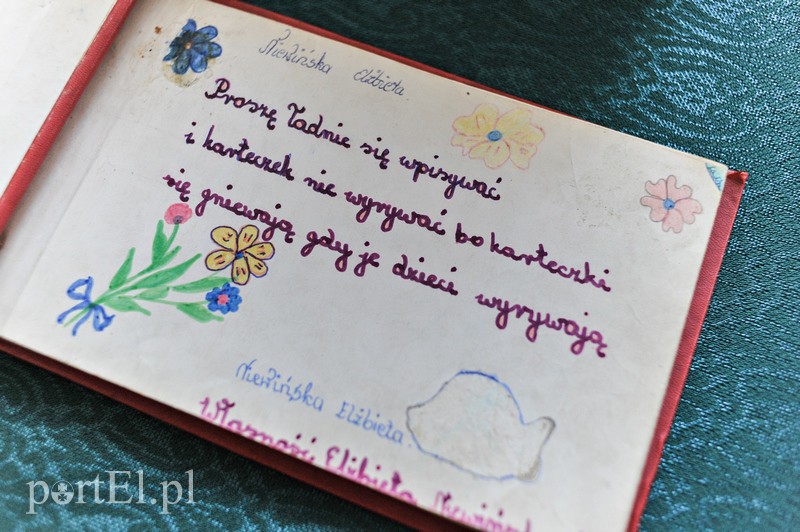 Niewińska Elżbieta
Proszę ładnie się wpisywać
i karteczek nie wyrywać bo karteczki
się gniewają gdy je dzieci wyrywają
Niewińska Elżbieta
Własność Elżbieta
portEl.pl